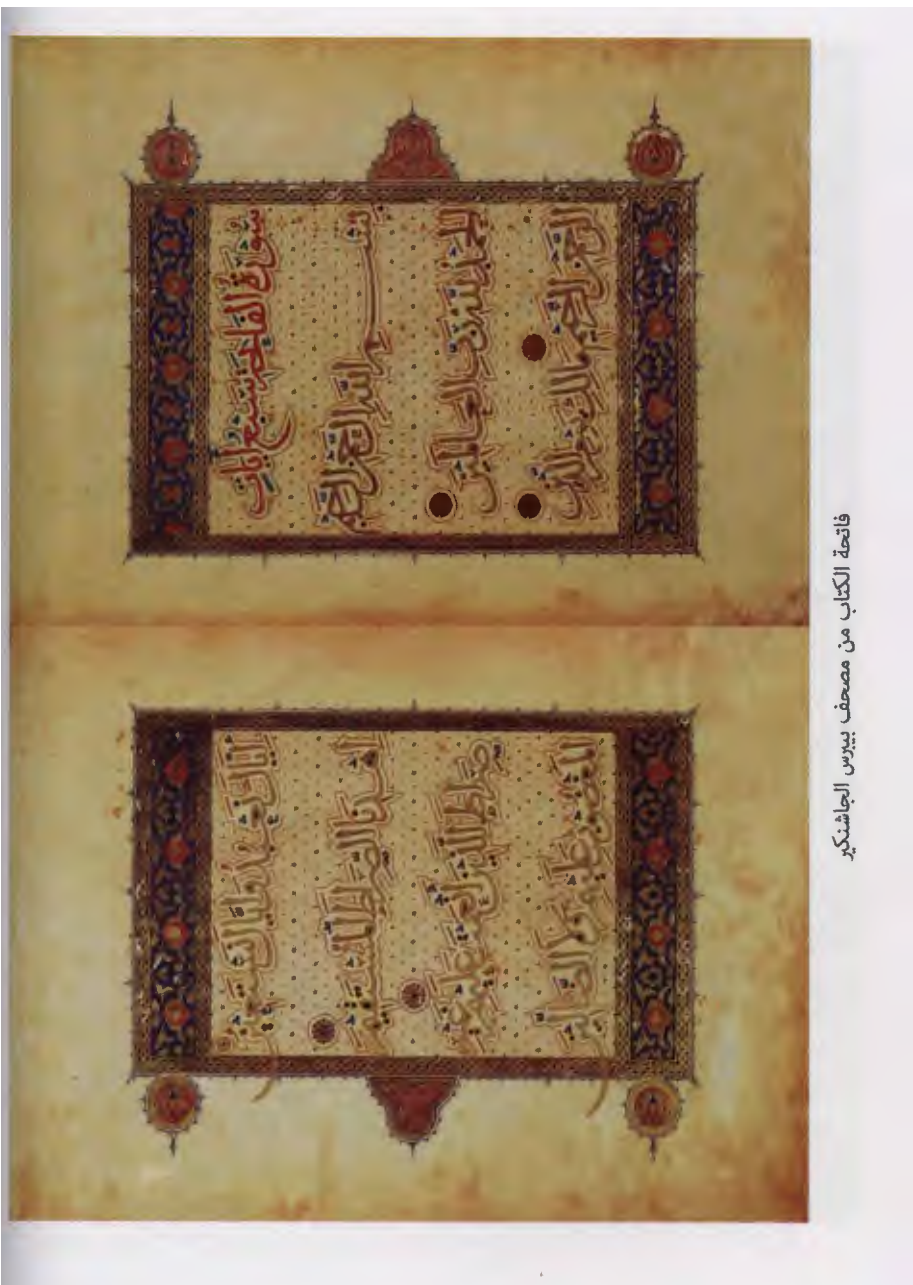 سورة الفاتحة سبع آيات
بسم الله الرحمن الرحيم
الحمد لله رب العالمين
الرحمن الرحيم مالك يوم الدين
إياك نعبد وإياك نستعين
اهدنا الصراط المستقيم
صراط الذين أنعمت عليهم غير
المغضوب عليهم ولا الضالين
فاتحة الكتاب من مصحف بيبرس الجاشنكير